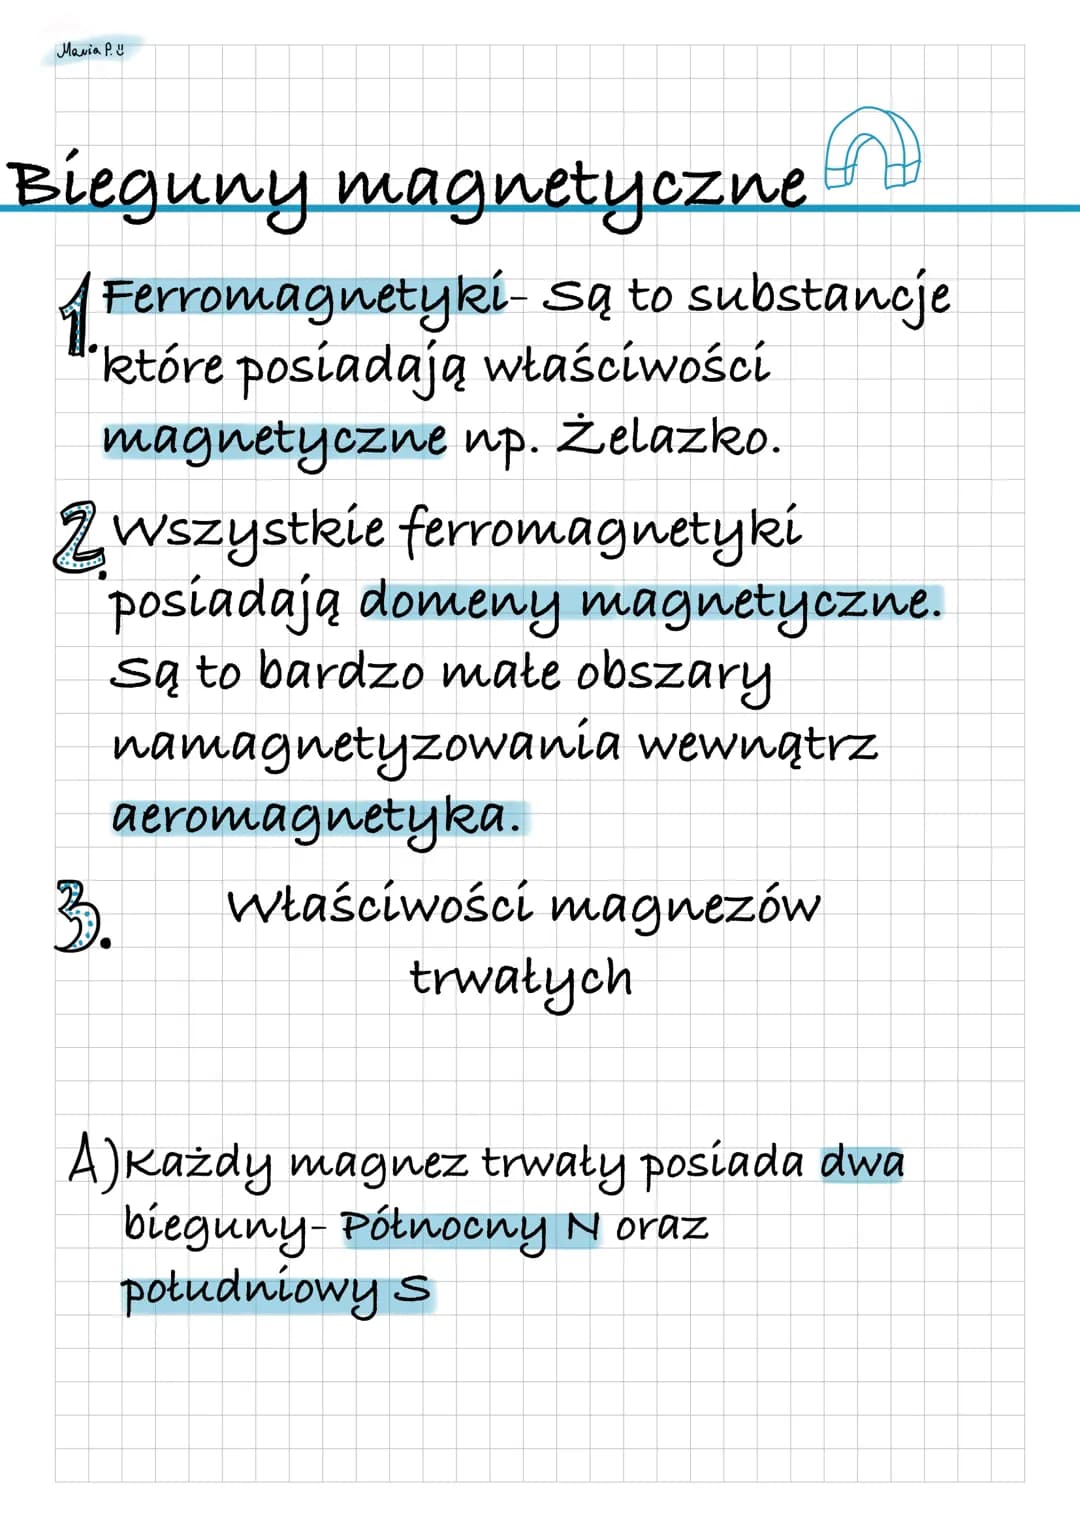 Mania P.
Bieguny magnetyczne
1. Ferromagnetyki- Są to substancje
które posiadają właściwości
magnetyczne np. Żelazko.
2. Wszystkie ferromagnetyki
posiadają domeny magnetyczne.
Są to bardzo małe obszary
namagnetyzowania wewnątrz
aeromagnetyka.
3. Właściwości magnezów
trwałych
A) Każdy magnez trwały posiada dwa
bieguny- Północny N oraz
południowy S